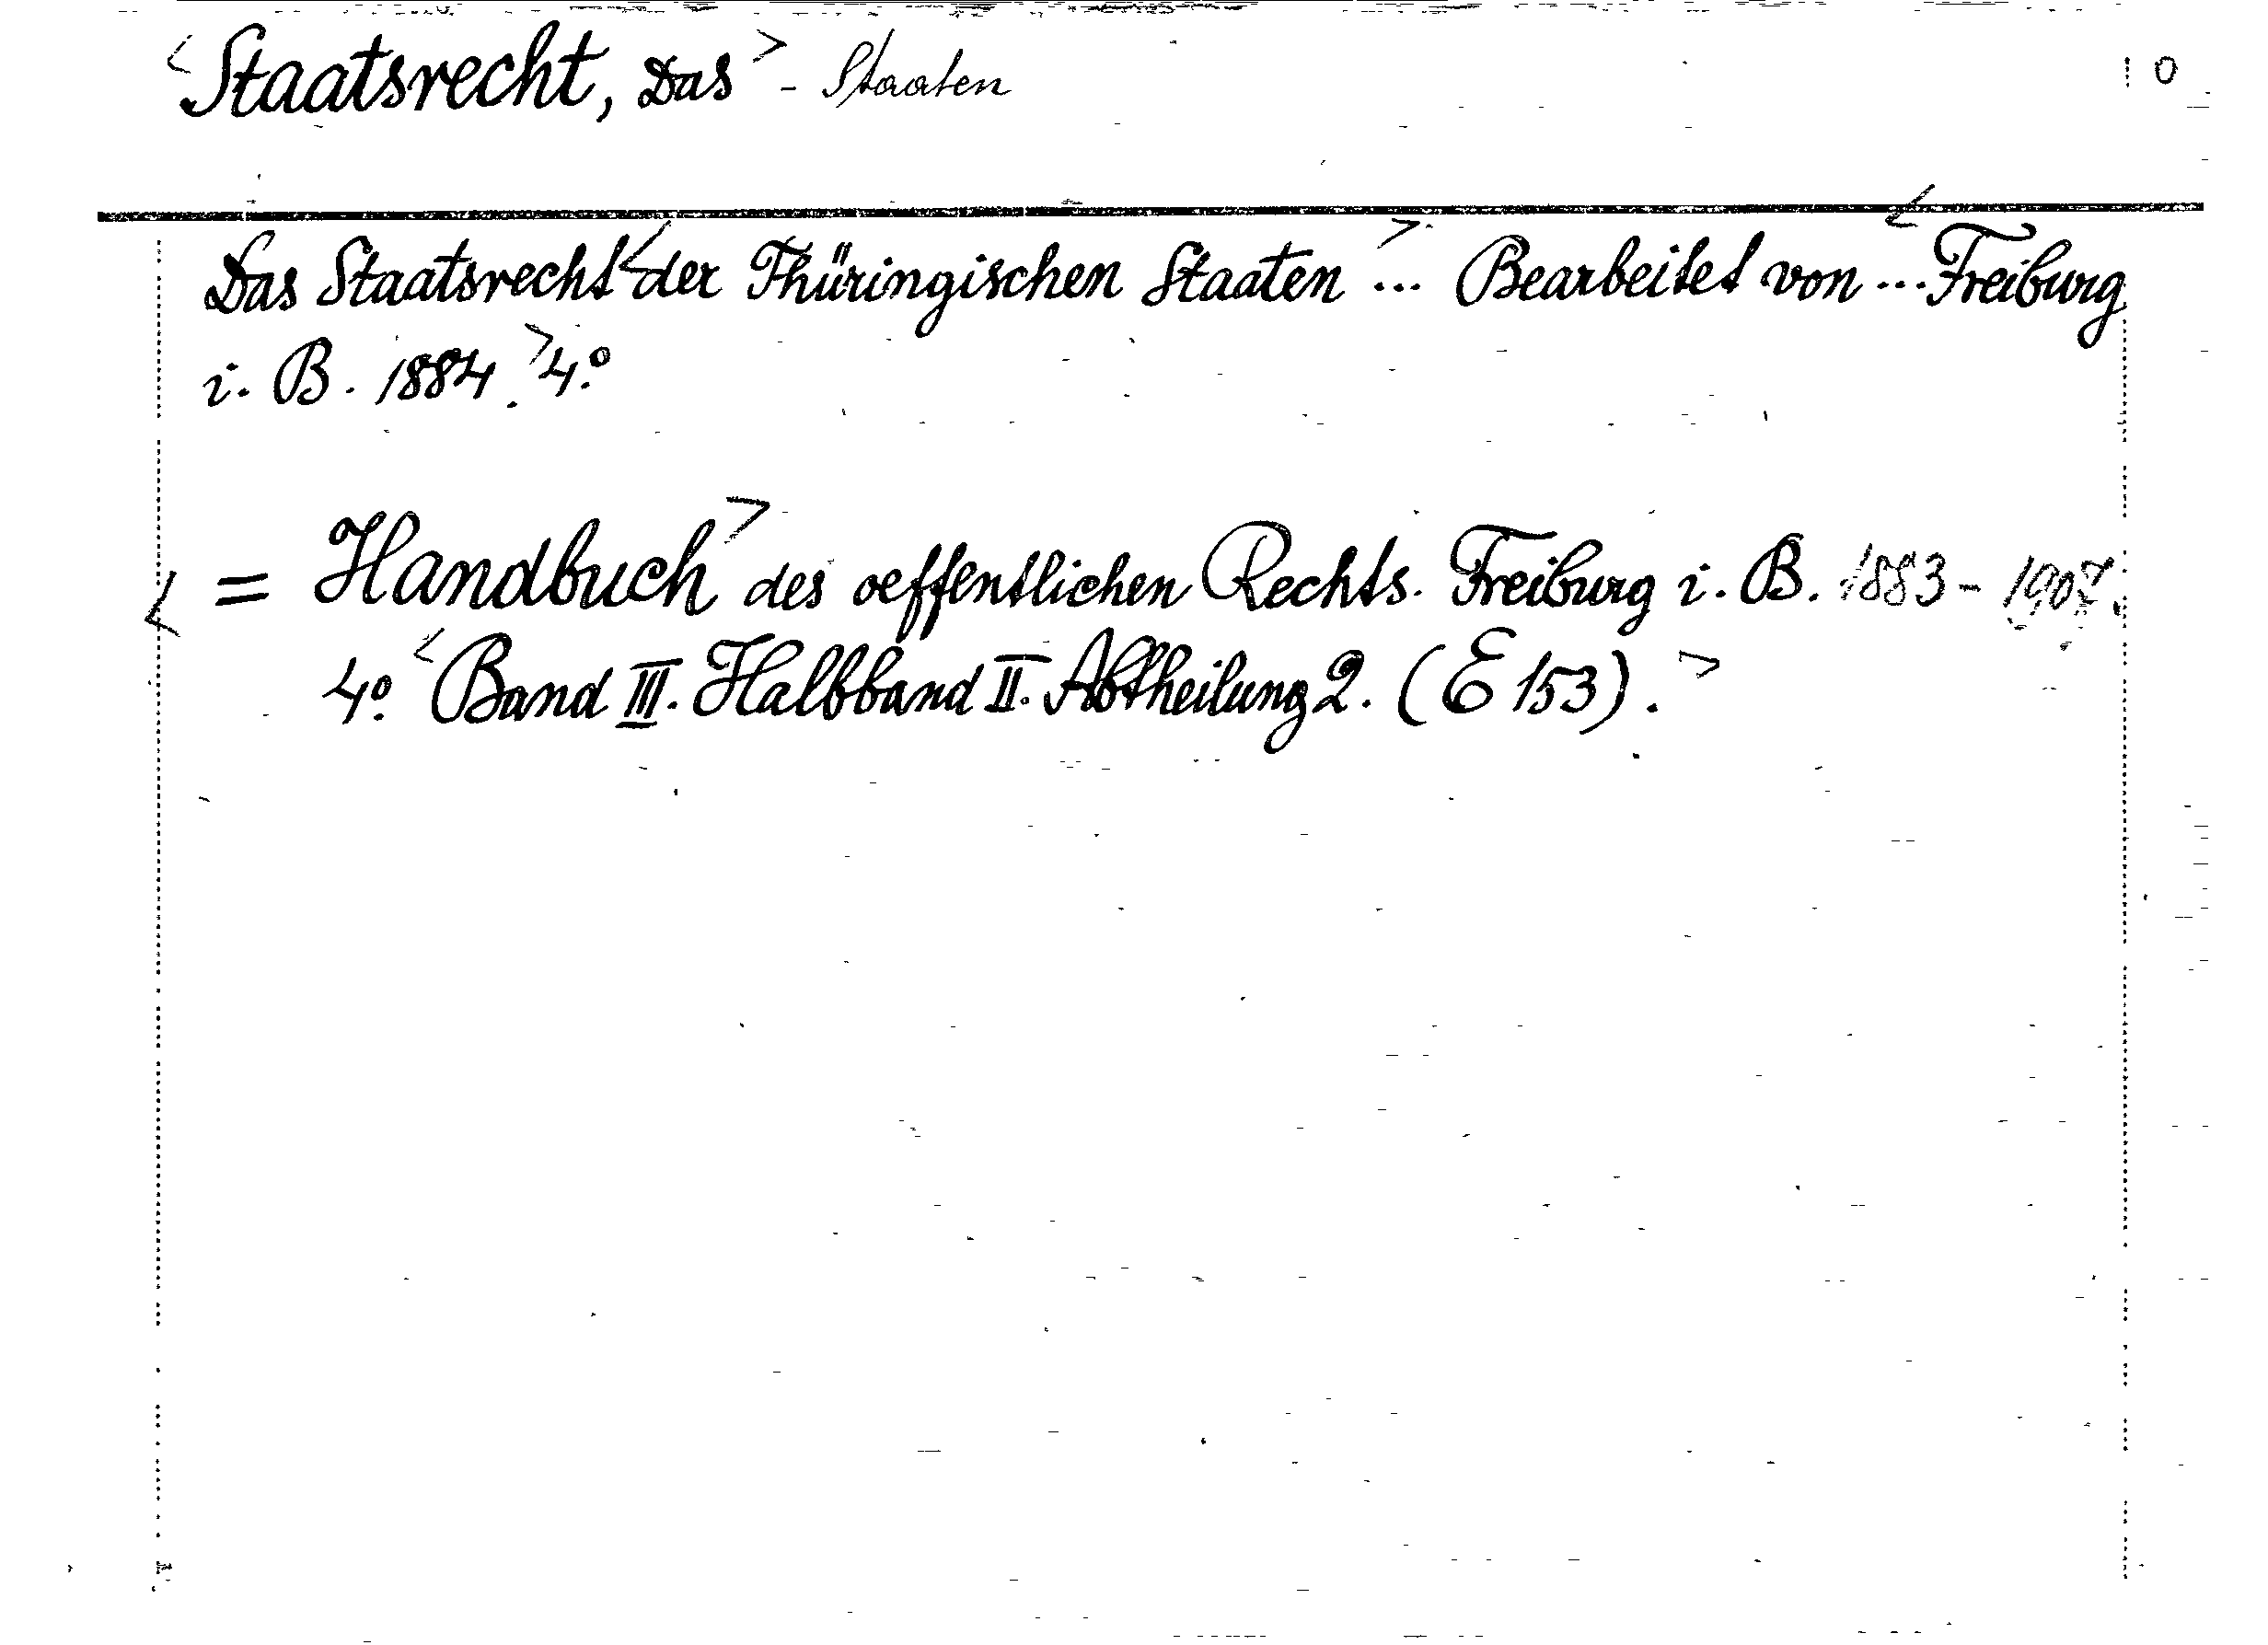 <Staatsrecht, Das> - Staaten O
Das Staatsrecht <der Thüringischen Staaten>... Bearbeitet von ... <Freiburg
i. B. 1884.> 4º.
<= Handbuch> des oeffentlichen Rechts. Freiburg i. B. 1883-1907.
4º. <Band III. Halbband II. Abtheilung 2. (E 153).>